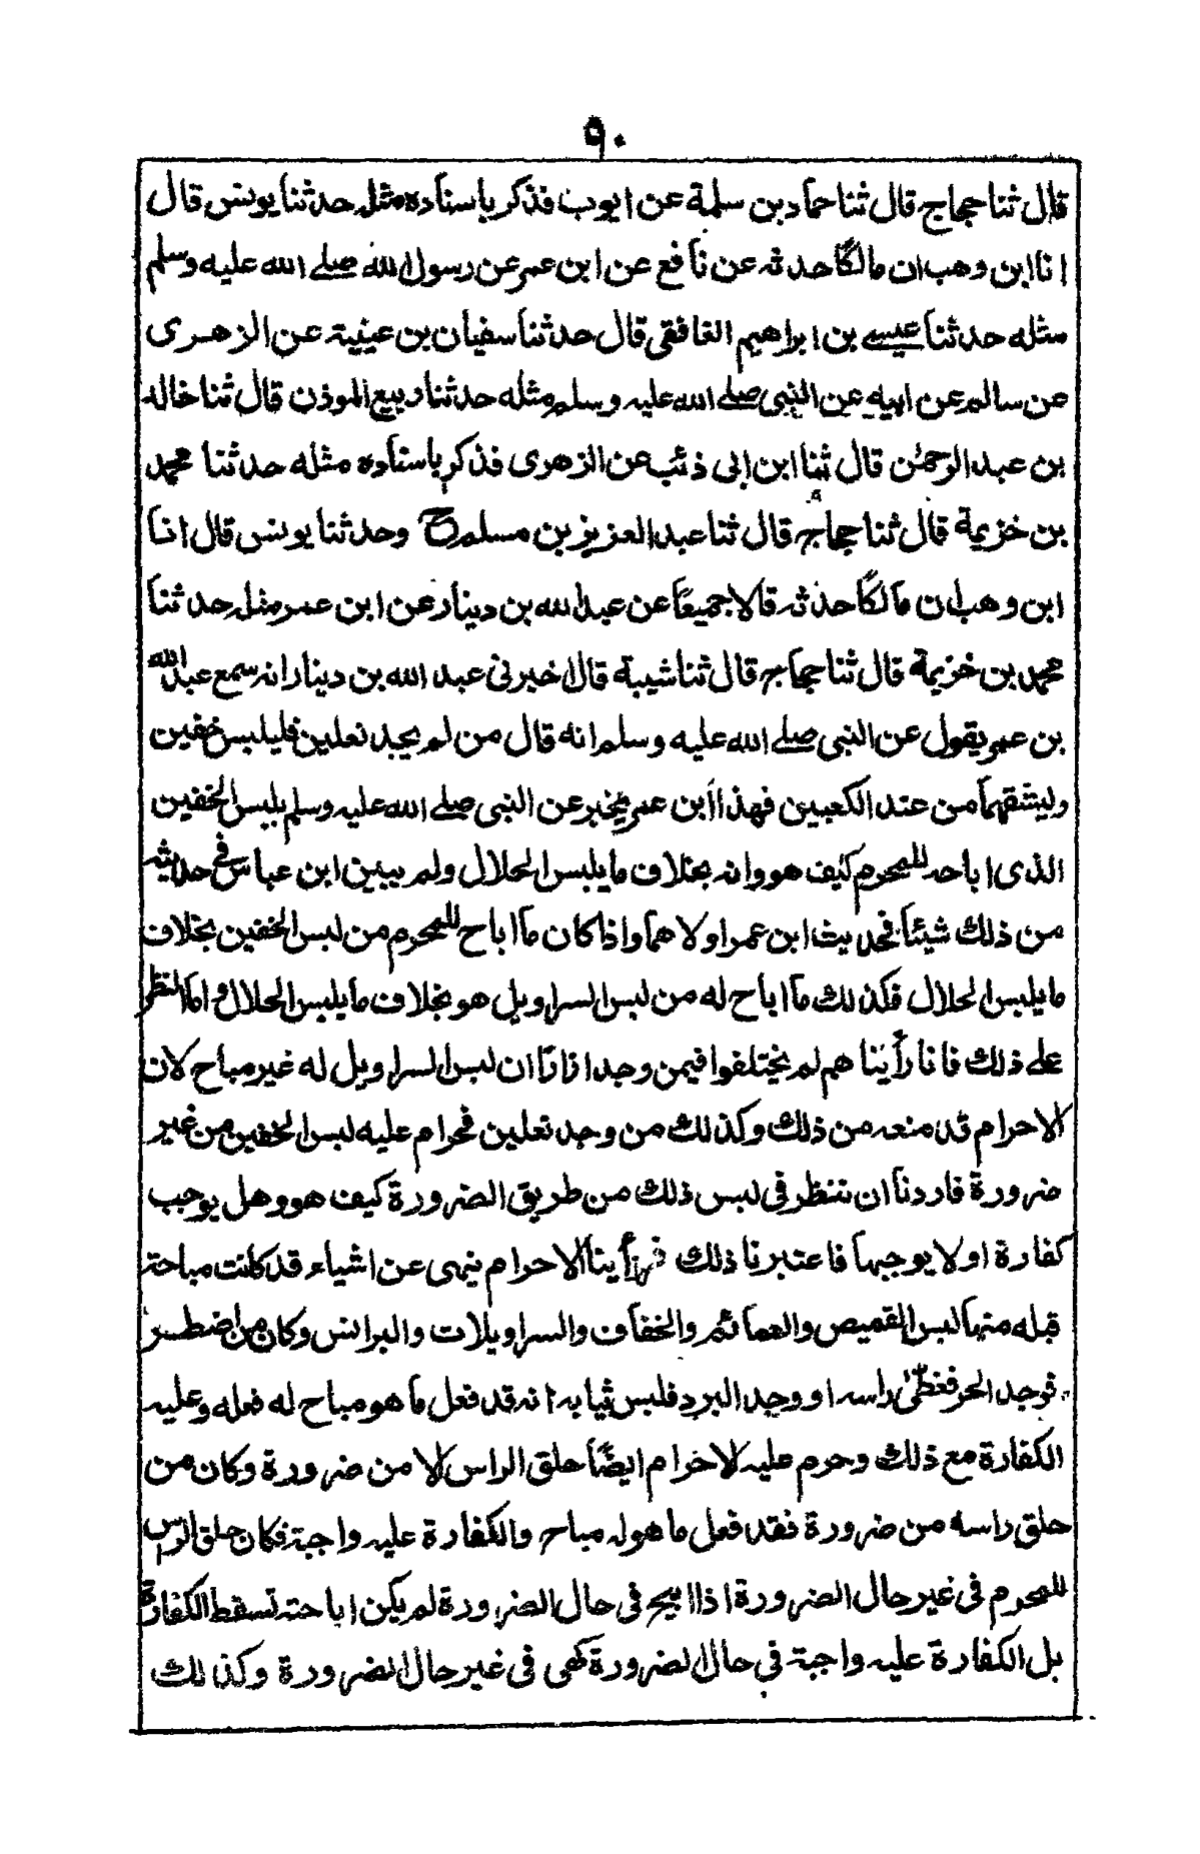 ٩٠
قال ثنا حجاج قال ثنا حماد بن سلمة عن ايوب فذكر باسناده مثله حدثنا يونس قال
انا ابن وهب ان مالكًا حدثه عن نافع عن ابن عمر عن رسول الله صلے الله عليه وسلم
مثله حدثنا عيسے بن ابراهيم الغافقى قال حدثنا سفيان بن عينية عن الزهرى
عن سالم عن ابيه عن النبى صلے الله عليه وسلم مثله حدثنا ربيع الموذن قال ثنا خالد
بن عبد الرحمٰن قال ثنا ابن ابى ذئب عن الزهرى فذكر باسناده مثله حدثنا محمد
بن خزيمة قال ثنا حجاج قال ثنا عبد العزيز بن مسلم ح وحدثنا يونس قال انا
ابن وهب ان مالكًا حدثه قالا جميعًا عن عبد الله بن دينار عن ابن عمر مثله حدثنا
محمد بن خزيمة قال ثنا حجاج قال ثنا شيبة قال اخبرنى عبد الله بن دينار انه سمع عبد الله
بن عمر يقول عن النبى صلے الله عليه وسلم انه قال من لم يجد نعلين فليلبس خفين
وليشقهما من عند الكعبين فهذا ابن عمر يخبر عن النبى صلے الله عليه وسلم بلبس الخفين
الذى اباحه للمحرم كيف هو وانه بخلاف ما يلبس الحلال ولم يبين ابن عباس فى حديثه
من ذلك شيئا فحديث ابن عمر اولاهما واذا كان ما اباح للمحرم من لبس الخفين بخلاف
ما يلبس الحلال فكذلك ما اباح له من لبس السراويل هو بخلاف ما يلبس الحلال واما النظر
علے ذلك فانا رأينا هم لم يختلفوا فيمن وجد ازارًا ان لبس السراويل له غير مباح لان
الاحرام قد منعه من ذلك وكذلك من وجد نعلين فحرام عليه لبس الخفين من غير
ضرورة فاردنا ان ننظر فى لبس ذلك من طريق الضرورة كيف هو وهل يوجب
كفارة او لا يوجبها فاعتبرنا ذلك فرأينا الاحرام ينهى عن اشياء قد كانت مباحة
قبله منها لبس القميص والعمائم والخفاف والسراويلات والبرانس وكان من اضطر
فوجد الحر فغطّٰى راسه او وجد البرد فلبس ثيابه انه قد فعل ما هو مباح له فعله وعليه
الكفارة مع ذلك وحرم عليه الاحرام ايضًا حلق الراس الا من ضرورة وكان من
حلق راسه من ضرورة فقد فعل ما هو له مباح والكفارة عليه واجبة فكان حلق الراس
للمحرم فى غير حال الضرورة اذا ابيح فى حال الضرورة لم يكن اباحته تسقط الكفارة
بل الكفارة عليه واجبة فى حال الضرورة كهى فى غير حال الضرورة وكذلك